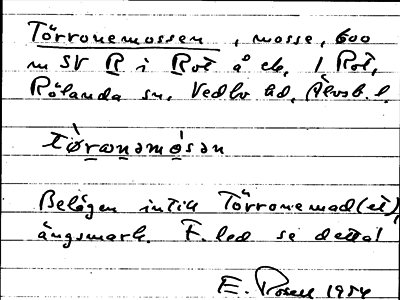 Törronemossen, mosse, 600
m SV R i Rot å ek, 1 Rot,
Rölanda sn, Vedbo hd, Älvsb. l.
tørωnəmósən
Belägen intill Törronemad(et),
ängsmark. F.led se detta!
E. 1984